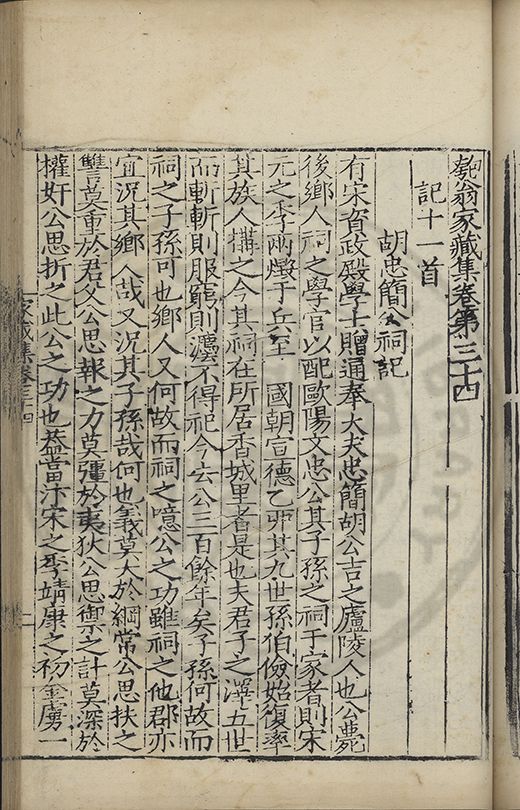 匏翁家藏集卷第三十四
記十一首
胡忠簡公祠記
有宋資政殿學士贈通奉大夫忠簡胡公吉之廬陵人也公薨
後鄉人祠之學官以配歐陽文忠公其子孫之祠于家者則宋
元之季兩燬于兵至 國朝宣德乙卯其九世孫伯儆始復率
其族人搆之今其祠在所居香城里者是也夫君子之澤五世
而斬斬則服窮則瀆不得祀今去公三百餘年矣子孫何故而
祠之子孫可也鄉人又何故而祠之噫公之功雖祠之他郡亦
宜況其鄉人哉又況其子孫哉何也義莫大於綱常公思扶之
讐莫重於君父公思報之力莫彊於夷狄公思禦之計莫深於
權奸公思折之此公之功也葢當汴宋之季靖康之初金虜一
家藏集卷三十四
一